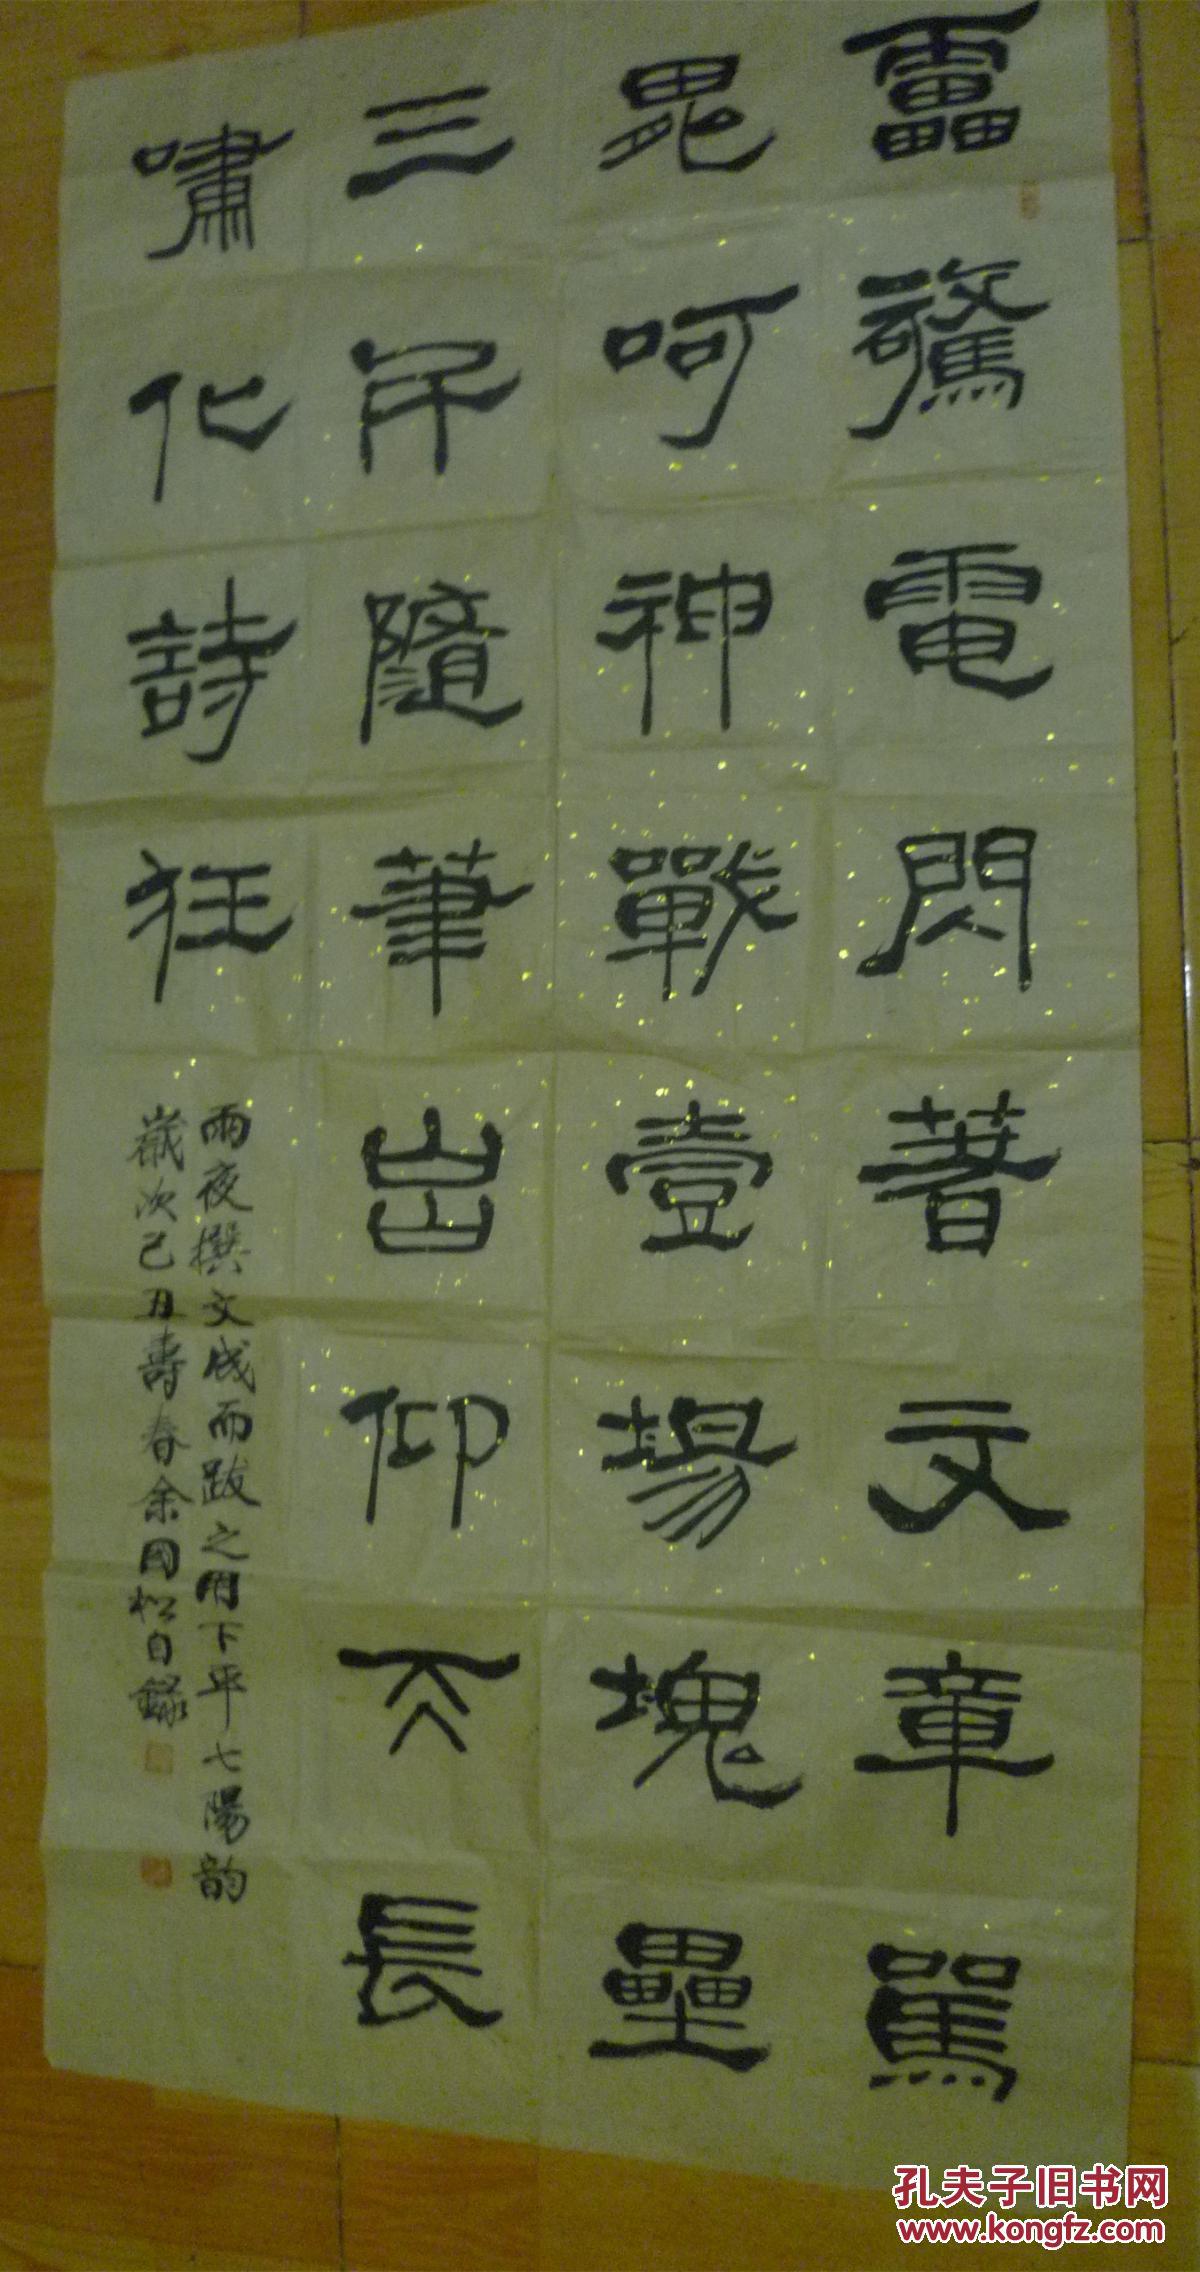 靁驚電閃著文章駡
鬼呵神戰壹場塊壘
三千隨筆出仰天長
嘯化詩狂
雨夜撰文成而跋之用下平七陽韵
歲次己丑壽春余國松自錄
孔夫子旧书网
www.kongfz.com